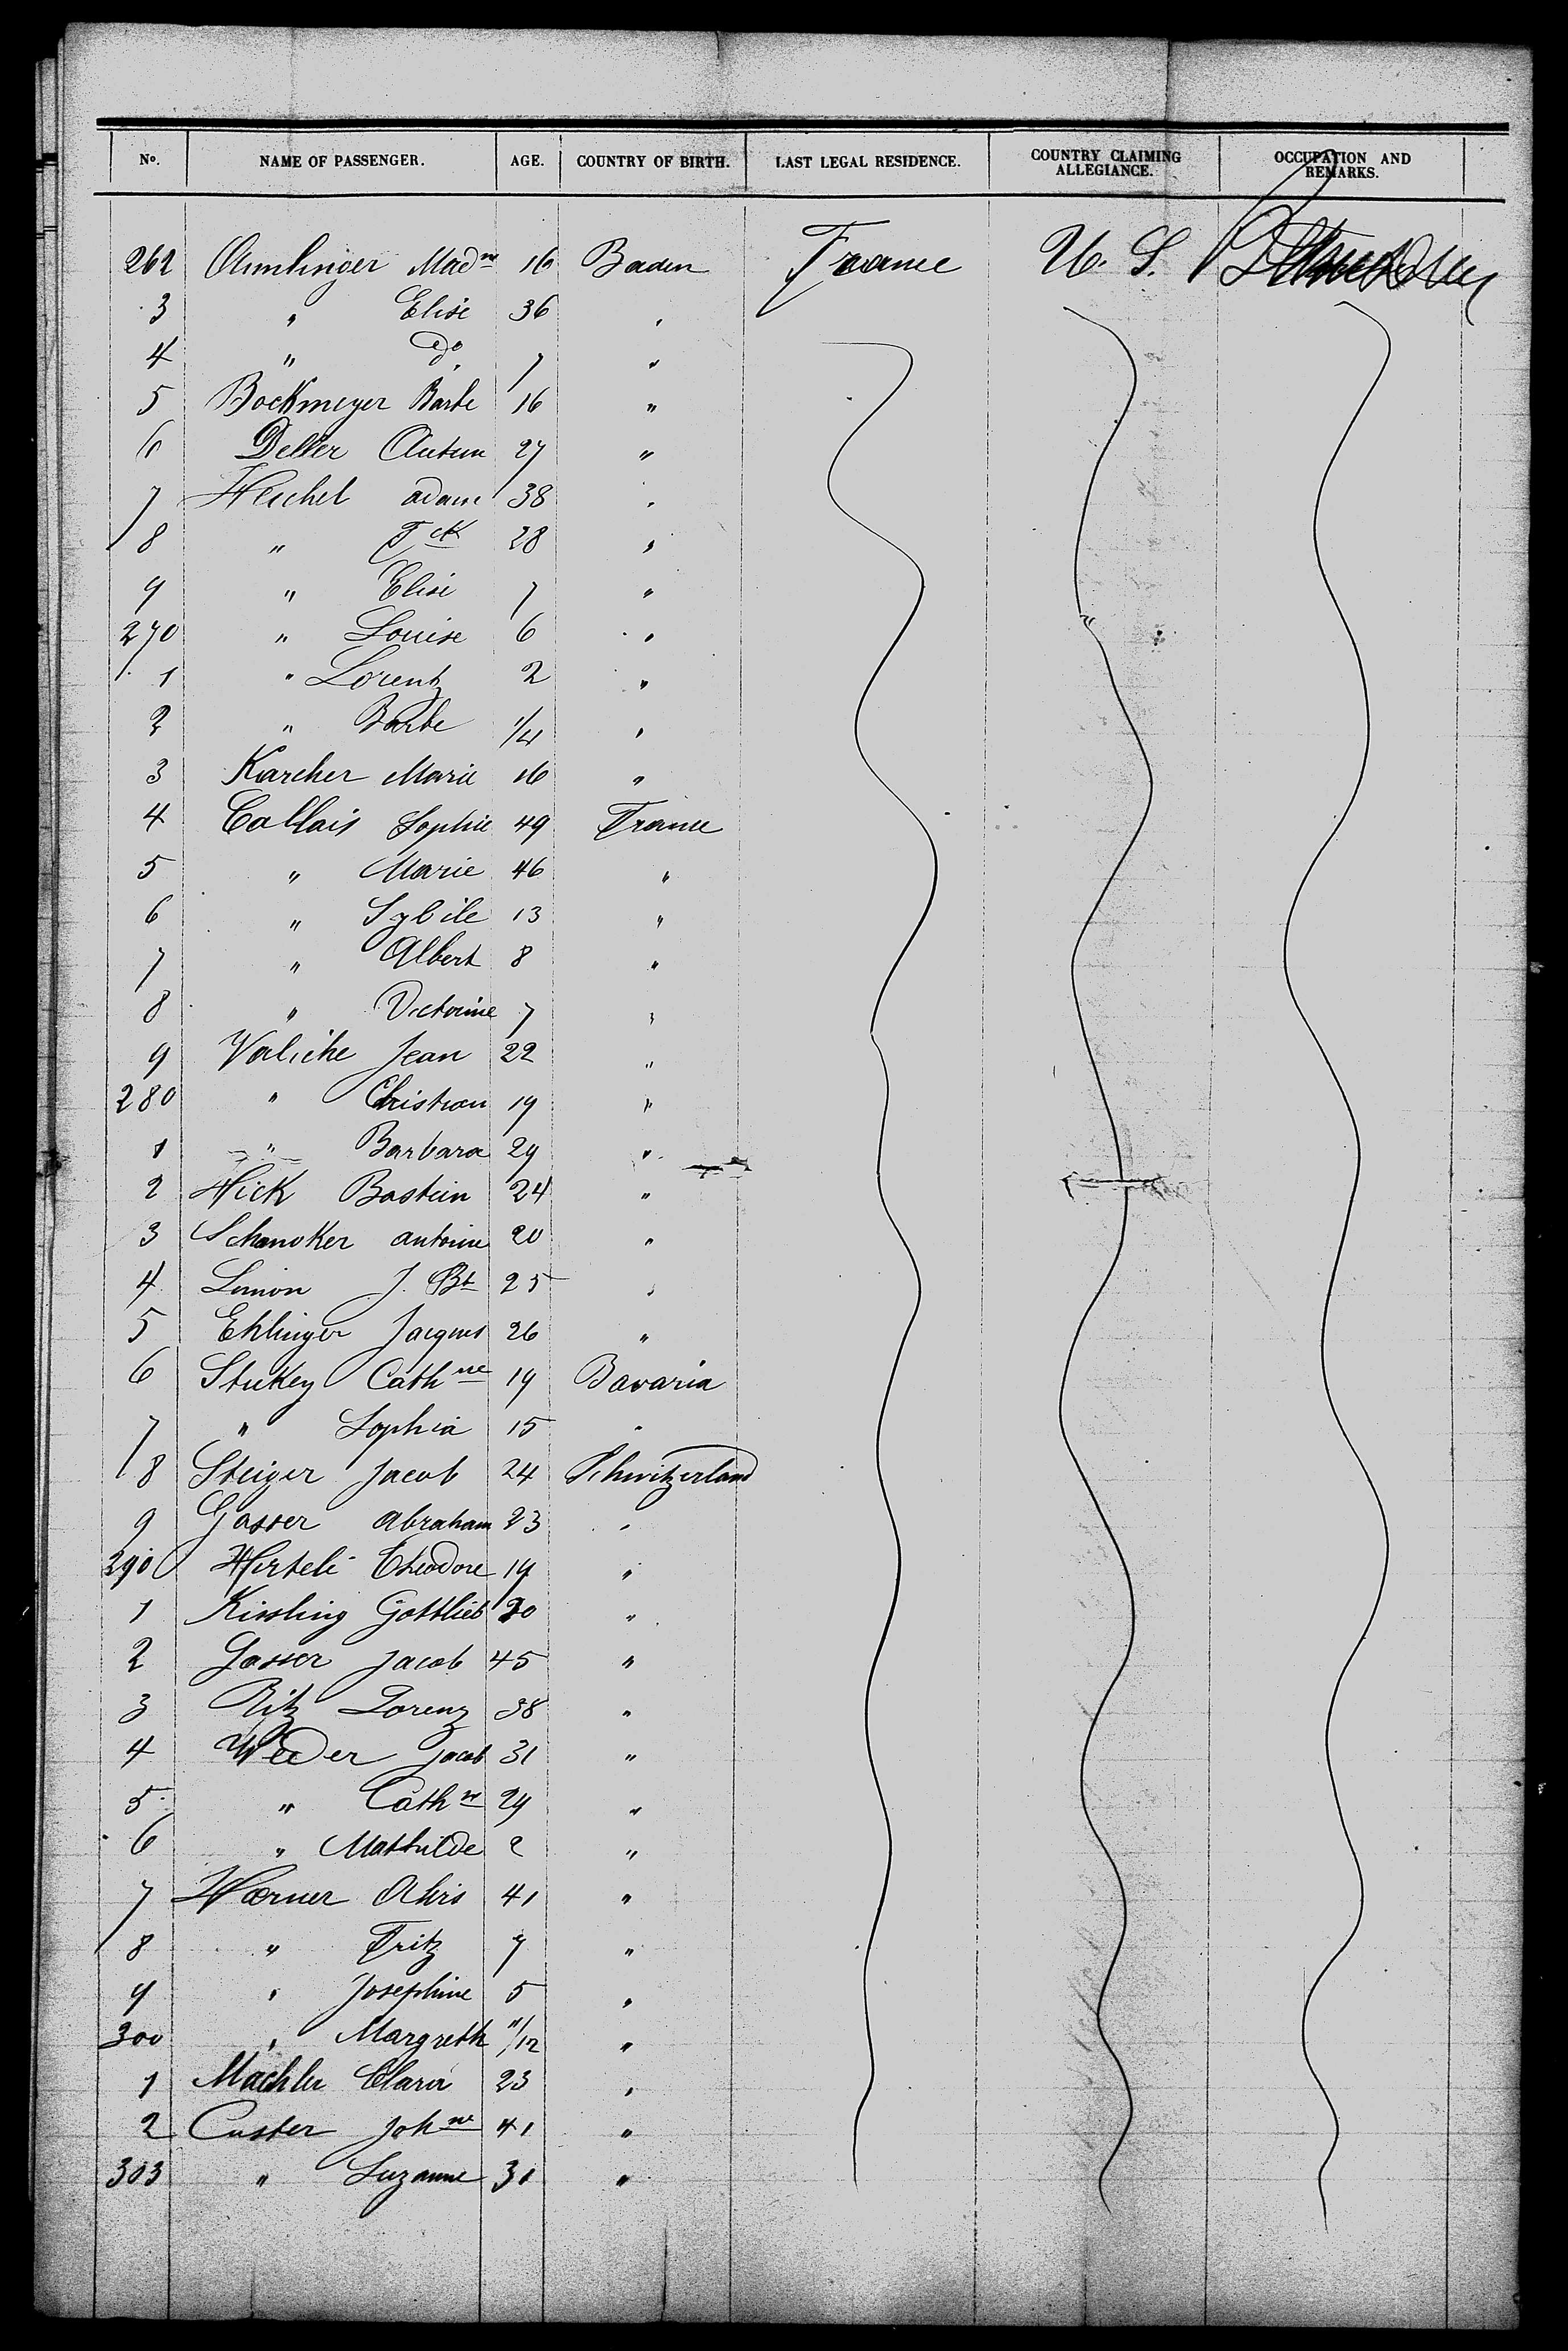 No. NAME OF PASSENGER. AGE. COUNTRY OF BIRTH. LAST LEGAL RESIDENCE. COUNTRY CLAIMING ALLEGIANCE. OCCUPATION AND REMARKS.
262 Aumlinger Mad^ne 16 Baden France U. S.
3 " Elise 36 "
4 " do 7 "
5 Bockmeyer Barbe 16 "
6 Deller 27 "
7 Heichel adam 38 "
8 " F^ck 28 "
9 " Elise 7 "
270 " Louise 6 "
1 " Lorentz 2 "
2 " Barbe 1/4 "
3 Karcher Marie 16 "
4 Callais Sophie 49 France
5 " Marie 46 "
6 " Sybile 13 "
7 " Albert 8 "
8 " Victorine 7 "
9 Valiche Jean 22 "
280 " Christian 19 "
1 " Barbara 29 "
2 Hick Bastien 24 "
3 Schmoker antoine 20 "
4 Simon J. Bt 25 "
5 Ehlinger Jacques 26 "
6 Stukey Cath^ne 19 Bavaria
7 " Sophia 15 "
8 Steiger Jacob 24 Schwitzerland
9 Gasser Abraham 23 "
290 Hirteli Theodore 19 "
1 Kissling Gottlieb 30 "
2 Gasser Jacob 45 "
3 Ritz Lorenz 38 "
4 Weder Jacob 31 "
5 " Cath^ne 29 "
6 " Mathilde 2 "
7 Werner Chris 41 "
8 " Fritz 7 "
9 " Josephine 5 "
300 " Margreth 11/12 "
1 Mächler Clara 23 "
2 Custer Joh^ne 41 "
303 " Suzanne 31 "